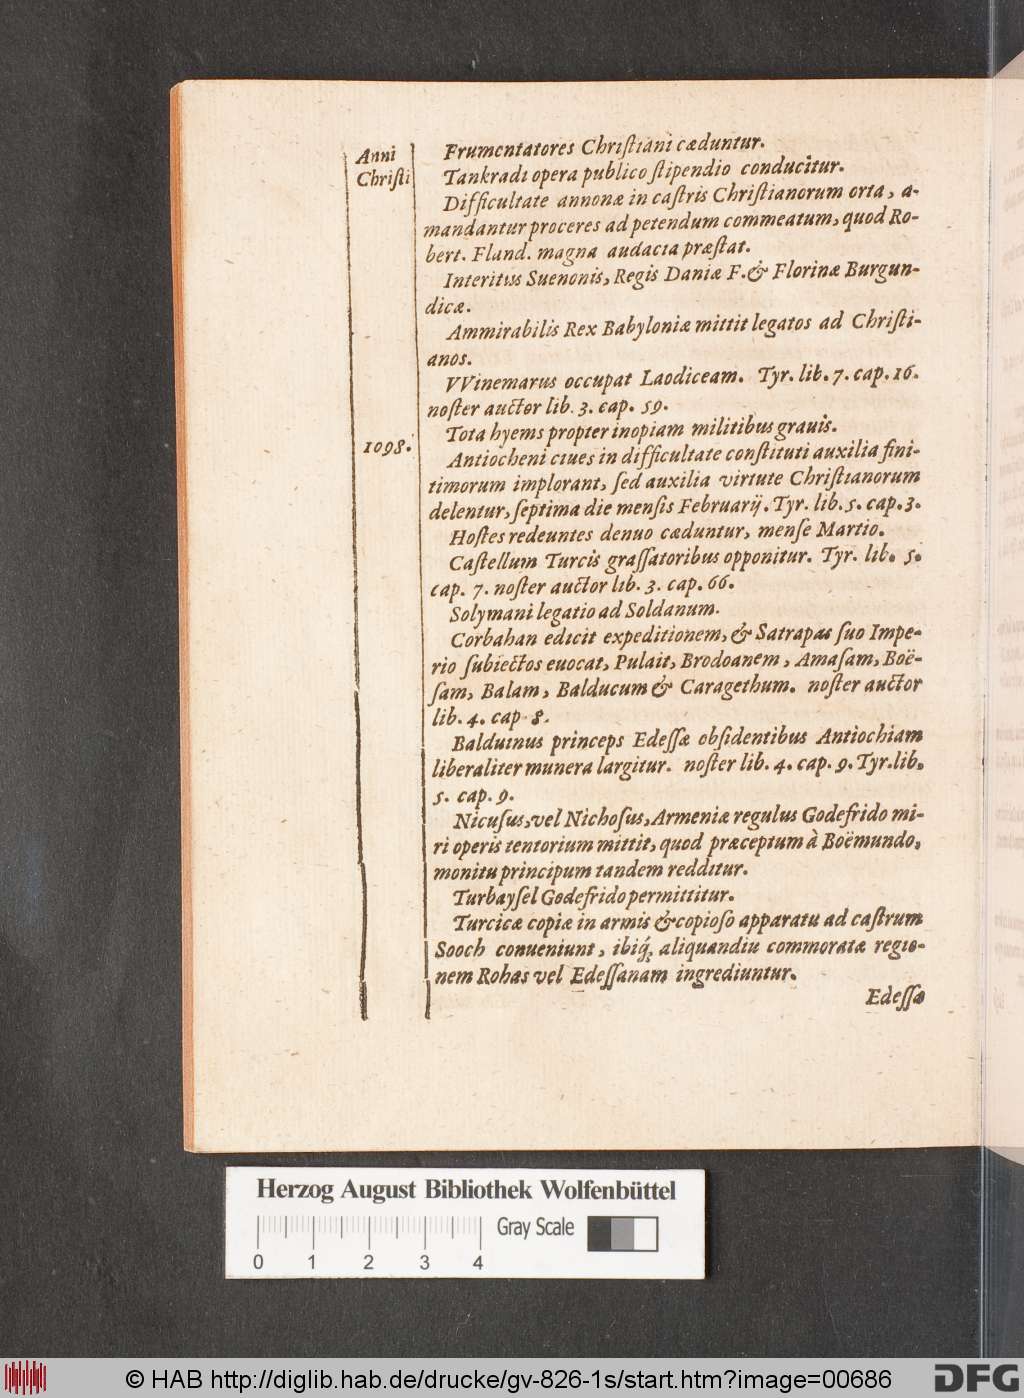 Anni
Christi
Frumentatores Christiani cæduntur.
Tankradi opera publico stipendio conducitur.
Difficultate annonæ in castris Christianorum orta, a-
mandantur proceres ad petendum commeatum, quod Ro-
bert. Fland. magna audacia præstat.
Interitus Suenonis, Regis Daniæ F. & Florinæ Burgun-
dicæ.
Ammirabilis Rex Babyloniæ mittit legatos ad Christi-
anos.
VVinemarus occupat Laodiceam. Tyr. lib. 7. cap. 16.
noster auctor lib. 3. cap. 59.
Tota hyems propter inopiam militibus grauis.
1098.
Antiocheni ciues in difficultate constituti auxilia fini-
timorum implorant, sed auxilia virtute Christianorum
delentur, septima die mensis Februarij. Tyr. lib. 5. cap. 3.
Hostes redeuntes denuo cæduntur, mense Martio.
Castellum Turcis grassatoribus opponitur. Tyr. lib. 5.
cap. 7. noster auctor lib. 3. cap. 66.
Solymani legatio ad Soldanum.
Corbahan edicit expeditionem, & Satrapas suo Impe-
rio subiectos euocat, Pulait, Brodoanem, Amasam, Boë-
sam, Balam, Balducum & Caragethum. noster auctor
lib. 4. cap 8.
Balduinus princeps Edessæ obsidentibus Antiochiam
liberaliter munera largitur. noster lib. 4. cap. 9. Tyr. lib.
5. cap. 9.
Nicusus, vel Nichosus, Armeniæ regulus Godefrido mi-
ri operis tentorium mittit, quod præceptum à Boëmundo,
monitu principum tandem redditur.
Turbaysel Godefrido permittitur.
Turcicæ copiæ in armis & copioso apparatu ad castrum
Sooch conueniunt, ibiq́; aliquandiu commoratæ regio-
nem Rohas vel Edessanam ingrediuntur.
Edessa
Herzog August Bibliothek Wolfenbüttel
Gray Scale
0 1 2 3 4
© HAB http://diglib.hab.de/drucke/gv-826-1s/start.htm?image=00686
DFG